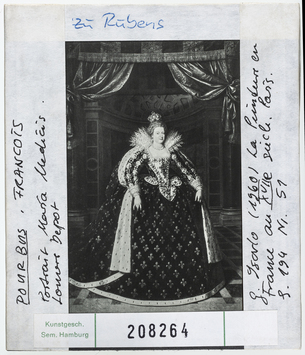 zu Rubens
POURBUS, FRANCOIS
Portrait Maria Medicis.
Louvre Depot
(1960) La Peinture en
France au XVIIe siècle. Paris.
S. 194 N. 51
Kunstgesch.
Sem. Hamburg
208264